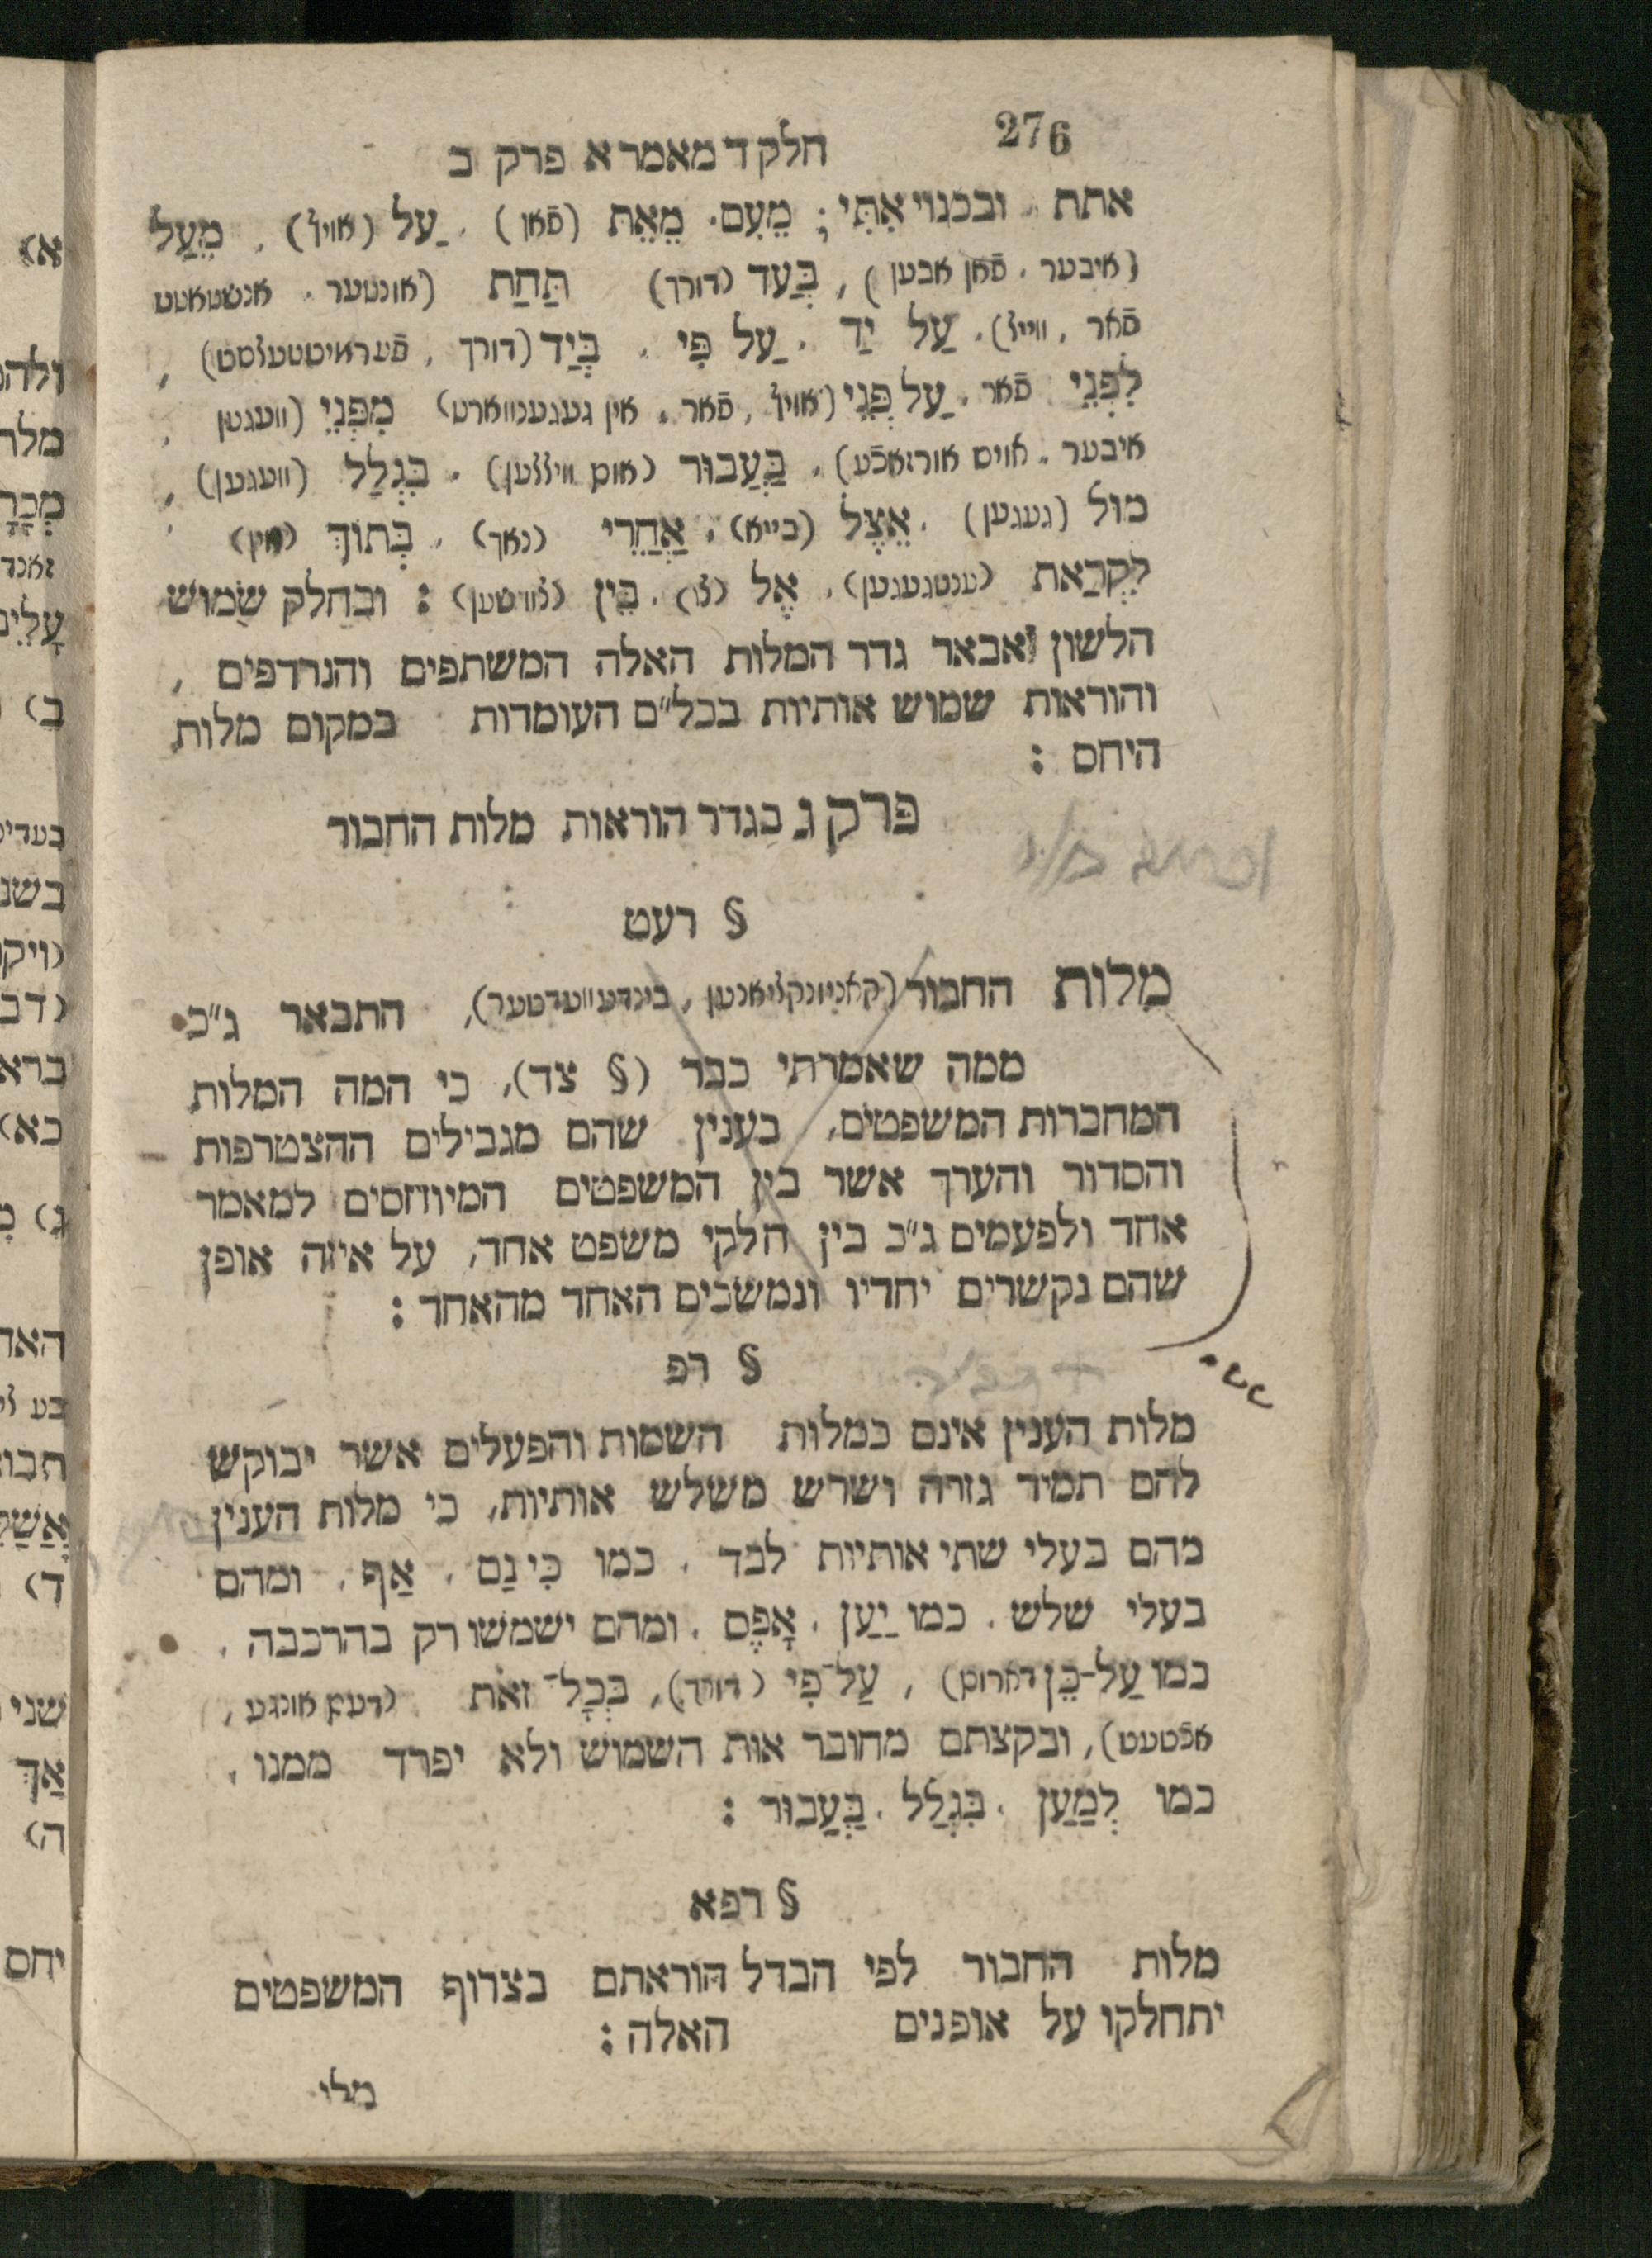 276
חלק ד מאמר א פרק ב
אתת ובכנוי אִתִּי; מֵעִם. מֵאֵת (פֿאן), עַל (אויף), מֵעַל
(איבער, פֿאן אבען), בְּעַד (דורך) תַּחַת (אונטער, אנשטאטט
פֿאר, ווייל). עַל יַד, עַל פִּי, בְּיַד (דורך, פֿערמיטטעלסט),
לִפְנֵי פֿאר, עַל פְּנֵי (אויף, פֿאר, אין געגענווארט) מִפְּנֵי (וועגען,
איבער, אויס אורזאכֿע), בַּעֲבוּר (אום ווילען), בִּגְלַל (וועגען),
מול (געגען), אֵצֶל (בייא), אַחֲרֵי (נאך), בְּתוֹךְ (אין)
לִקְרַאת (ענטגעגען), אֶל (צו), בֵּין : ובחלק שמוש
הלשון אבאר גדר המלות האלה המשתפים והנרדפים,
והוראות שמוש אותיות בכל״ם העומדות במקום מלות
היחס :
פרק ג בגדר הוראות מלות החבור
§ רעט
מלות החבור (קאניונקציאנען, בינדעווערטער), התבאר ג״כ
ממה שאמרתי כבר (§ צד), כי המה המלות
המחברות המשפטים, בענין שהם מגבילים ההצטרפות
והסדור והערך אשר בין המשפטים המיוחסים למאמר
אחד ולפעמים ג״כ בין חלקי משפט אחד, על איזה אופן
שהם נקשרים יחדיו ונמשכים האחד מהאחד :
§ רפ
מלות הענין אינם כמלות השמות והפעלים אשר יבוקש
להם תמיד גזרה ושרש משלש אותיות, כי מלות הענין
מהם בעלי שתי אותיות לבד, כמו כִּי גַם, אַף, ומהם
בעלי שלש, כמו יַעַן, אֶפֶס, ומהם ישמשו רק בהרכבה,
כמו עַל-כֵּן דארום), עַל־פִּי (דורך), בְּכָל־זֹאת (דעם אונגע,
אכֿטעט), ובקצתם מחובר אות השמוש ולא יפרד ממנו,
כמו לְמַעַן, בִּגְלַל, בַּעֲבוּר :
§ רפא
מלות החבור לפי הבדל הוראתם בצרוף המשפטים
יתחלקו על אופנים האלה :
מלי